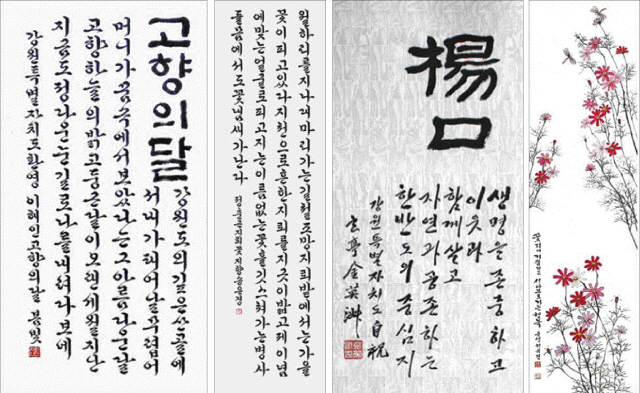 고향의 달
강원도의 깊은 산골에
서 내가 태어날 무렵 어
머니가 꿈속에서 보았다는 그 아름다운 달
고향 하늘의 밝고 둥근 달이 오랜 세월 지난
지금도 정다운 눈길로 나를 내려다보네
강원특별자치도환영 이해인 고향의달 봄빛
월하리를 지나 대마리 가는 길 철조망 지뢰밭에서는 가을
꽃이 피고 있다 지천으로 흔한 지뢰를 지긋이 밟고 제 이념
에 맞는 얼굴로 피고 지는 이름 없는 꽃 스쳐 가는 병사
들 몸에서도 꽃냄새가 난다
정춘근 지뢰꽃
楊口
생명을 존중하고
이웃과
함께 살고
자연과 공존하는
한반도의 중심지
강원특별자치도 自祝
玄亭 金英